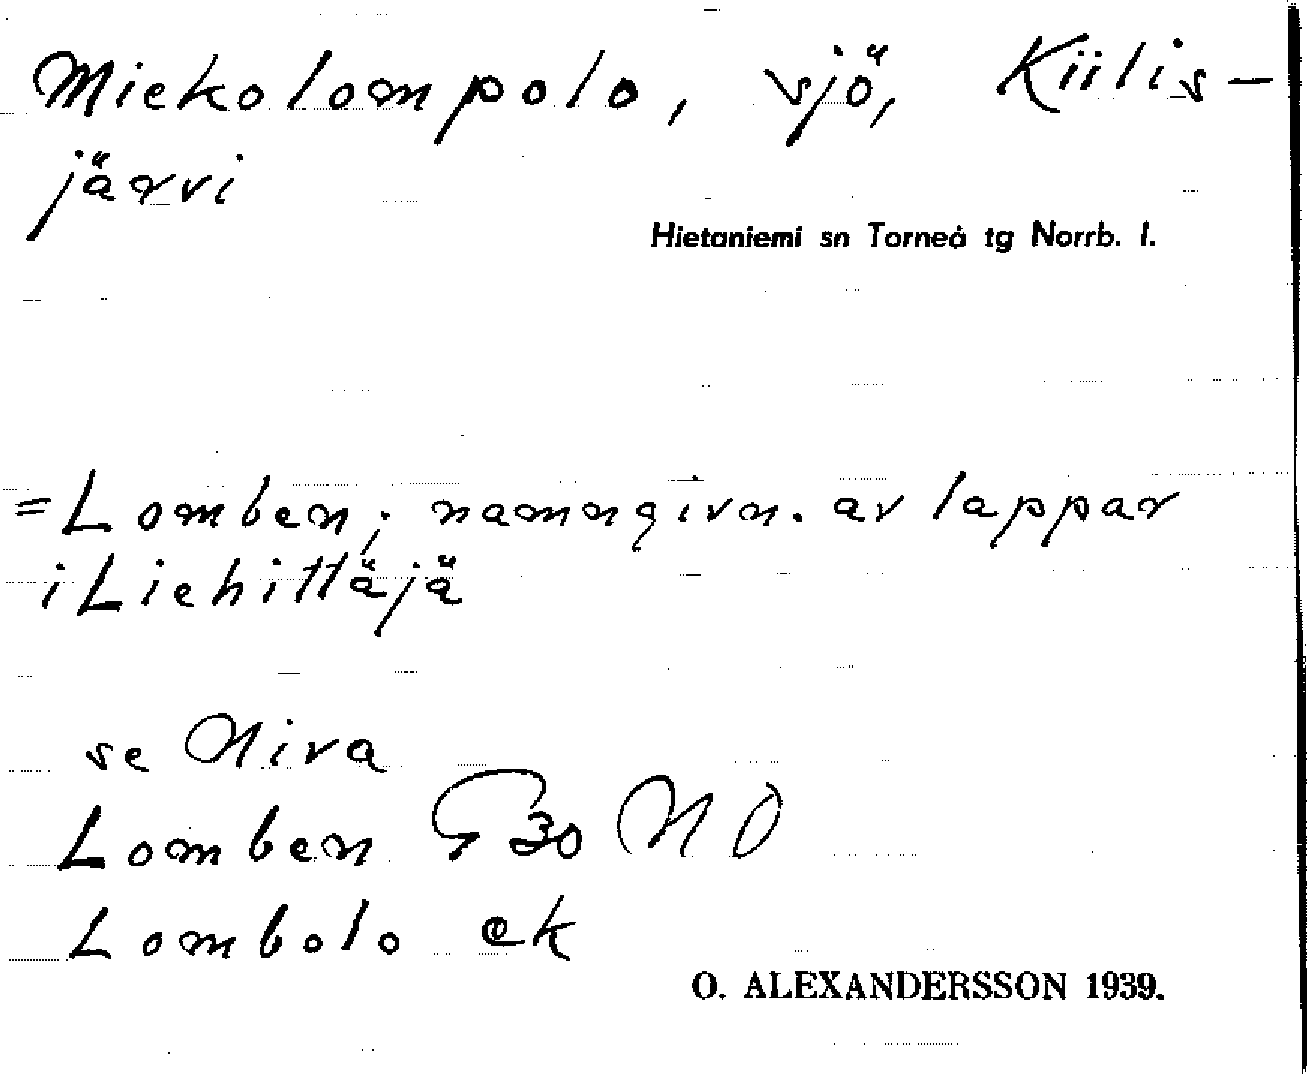 Miekolompolo, sjö, Kiilis-
järvi
Hietaniemi sn Torneå tg Norrb. l.
=Lomben; namngivn. av lappar
i Liehittäjä
se Niva
Lomben G30 NO
Lombolo ek
O. ALEXANDERSSON 1939.